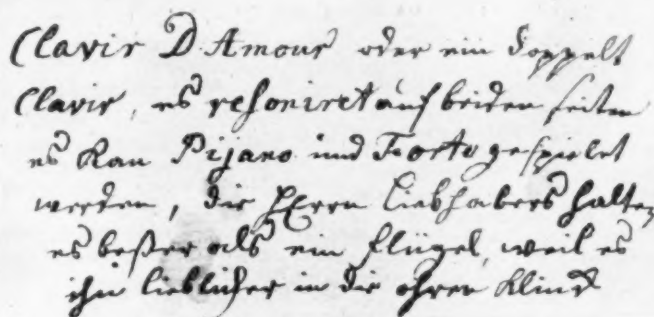 Clavir D Amour oder ein doppelt
Clavir, es resoniret auf beiden seiten
es Kan Pijano und Forto gespielet
werden, die HErrn Liebhabers halten
es beßer als ein flügel, weil es
ihn lieblicher in die ohren Klind